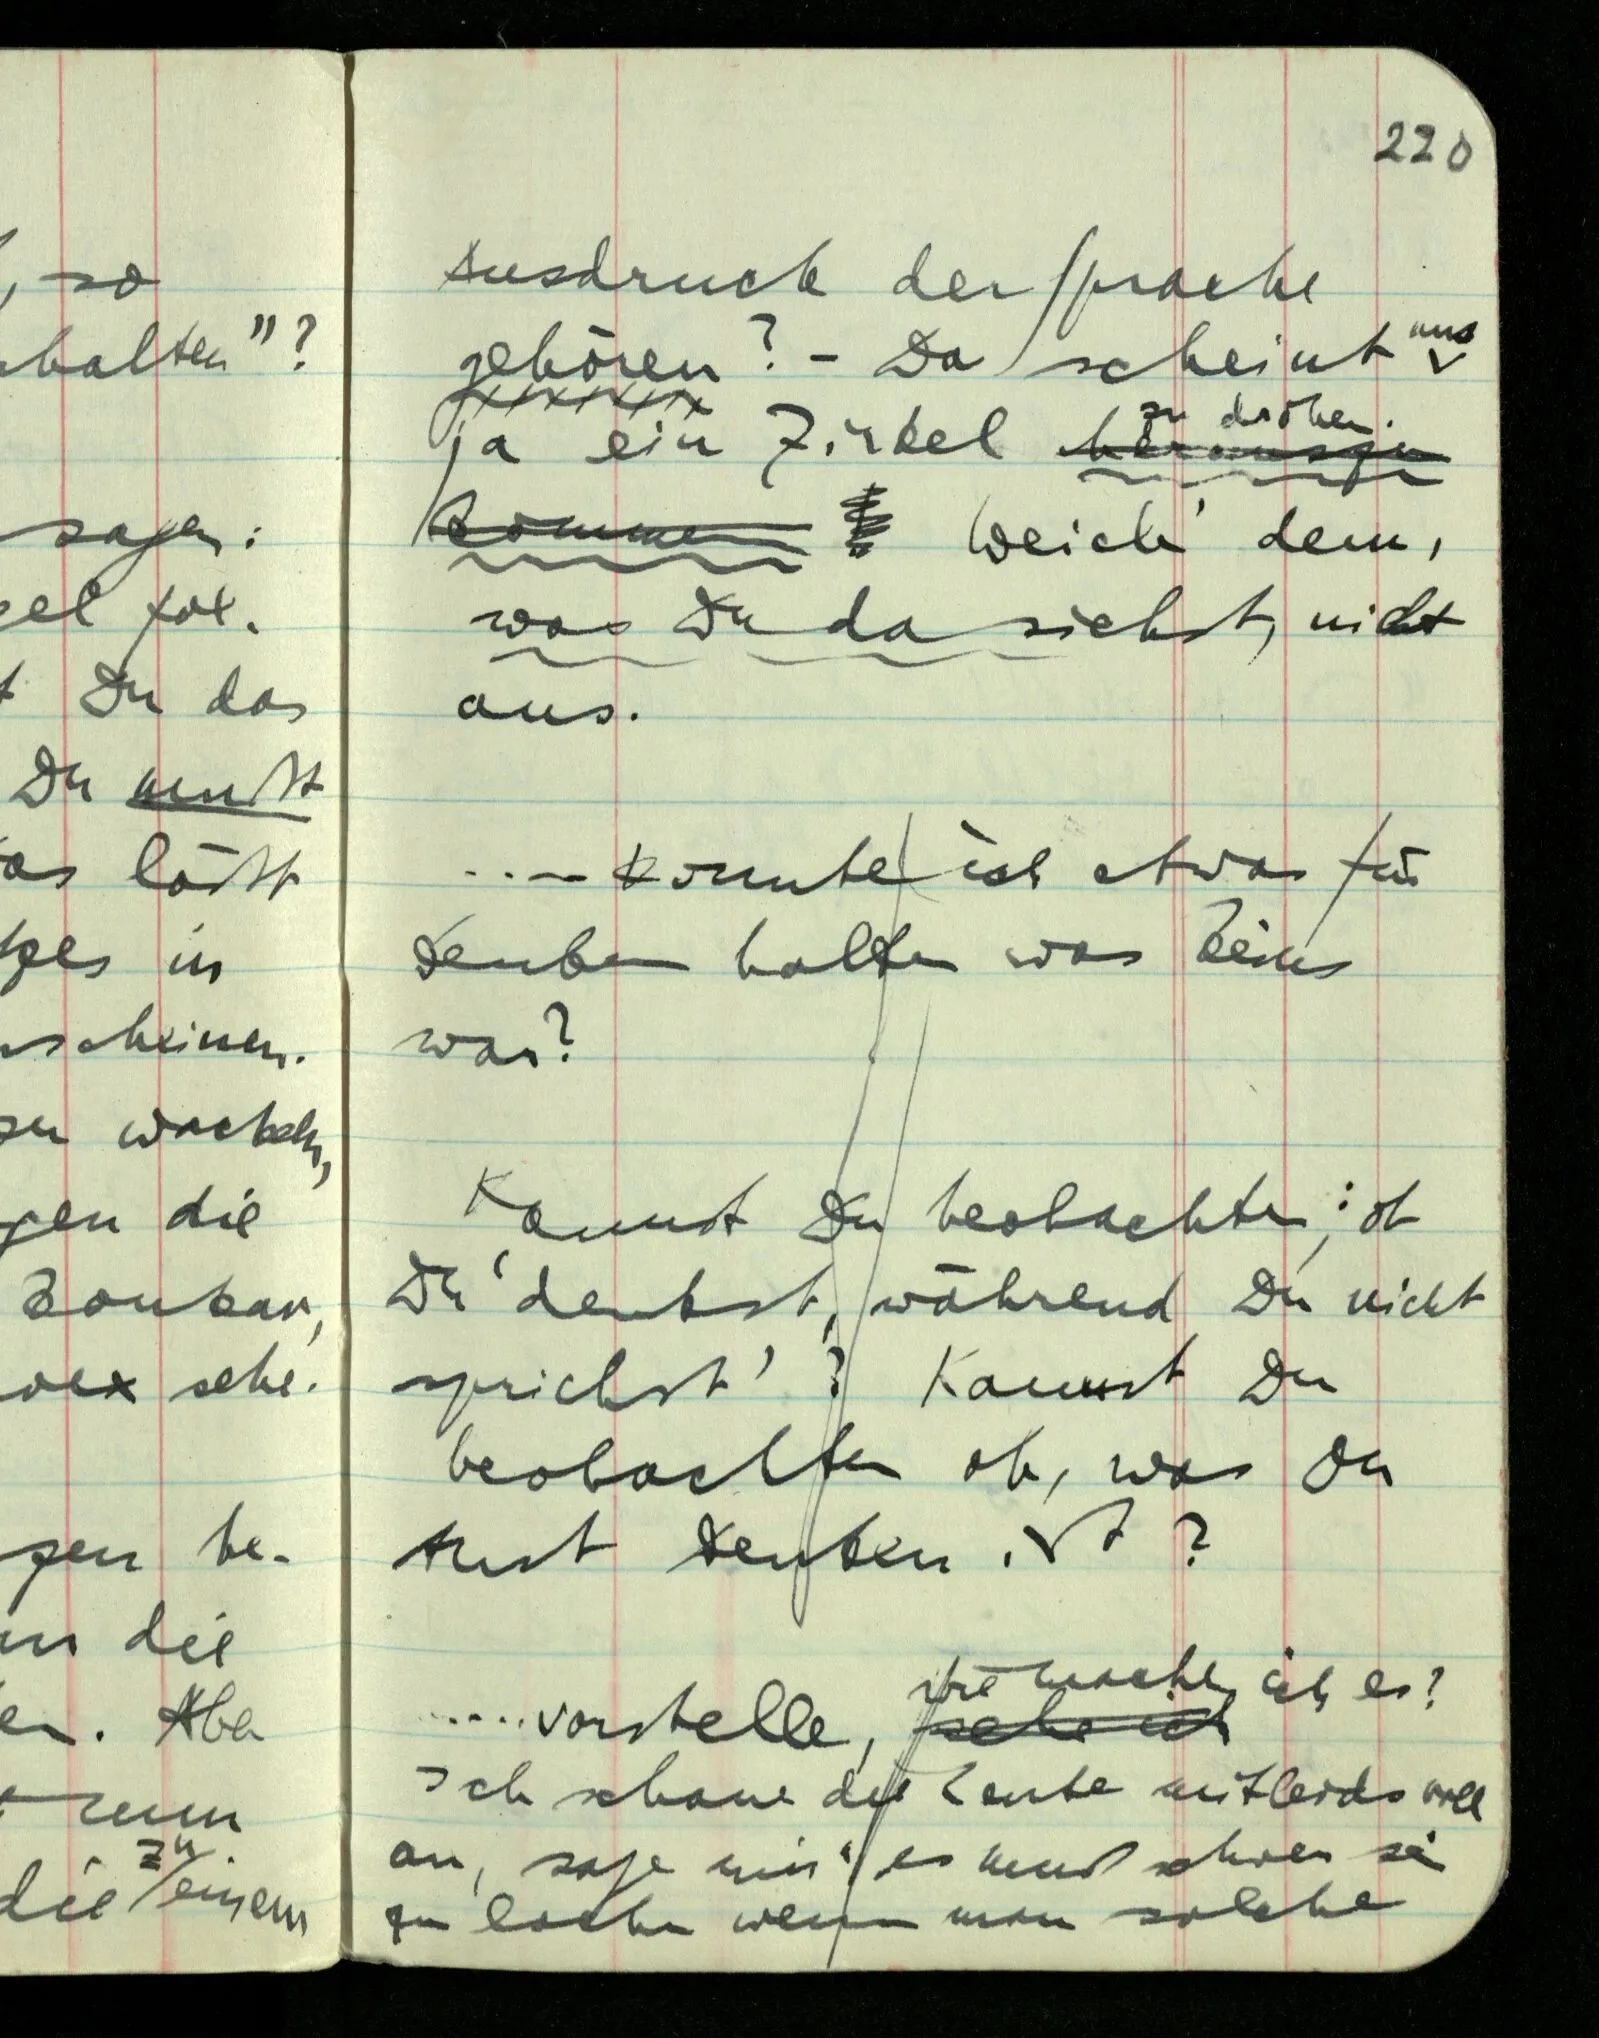 , so
halten"?
sagen:
Du das
Du mußt
läßt
in
scheinen.
wackeln,
gen die
konkav,
vex sehe.
gen be-
die
Aber
nun
zu
die einem
220
Ausdruck der Sprache
gehören? – Da scheint uns
zu drohen.
ja ein Zirkel herauszu
kommen Weich' dem,
was Du da siehst, nicht
aus.
....Konnte ich etwas für
Denken halten was keins
war?
Kannst Du beobachten; ob
Du 'denkst, während Du nicht
sprichst'? Kannst Du
beobachten ob, was Du
tust Denken ist?
wie mache ich es?
.....vorstelle, sehe ich
Ich schaue die Leute mitleidsvoll
an, sage mir "es muß schwer sein
zu lachen wenn man solche